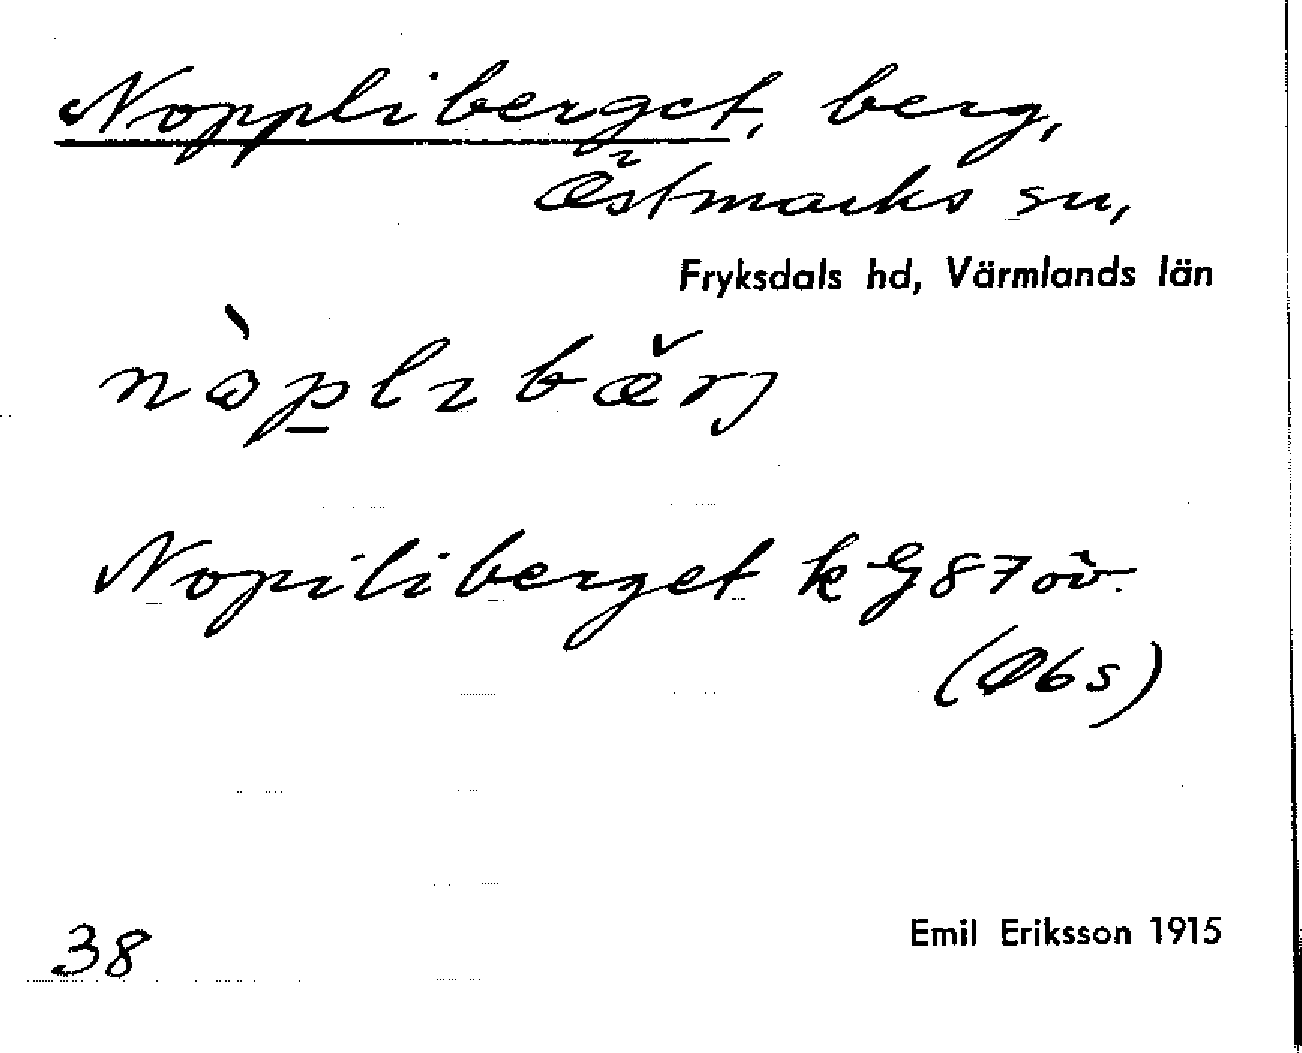 Noppliberget, berg,
Östmarks sn,
Fryksdals hd, Värmlands län
nòplɩbæ̌rj
Nopiliberget k G87 öv.
(Obs)
38
Emil Eriksson 1915